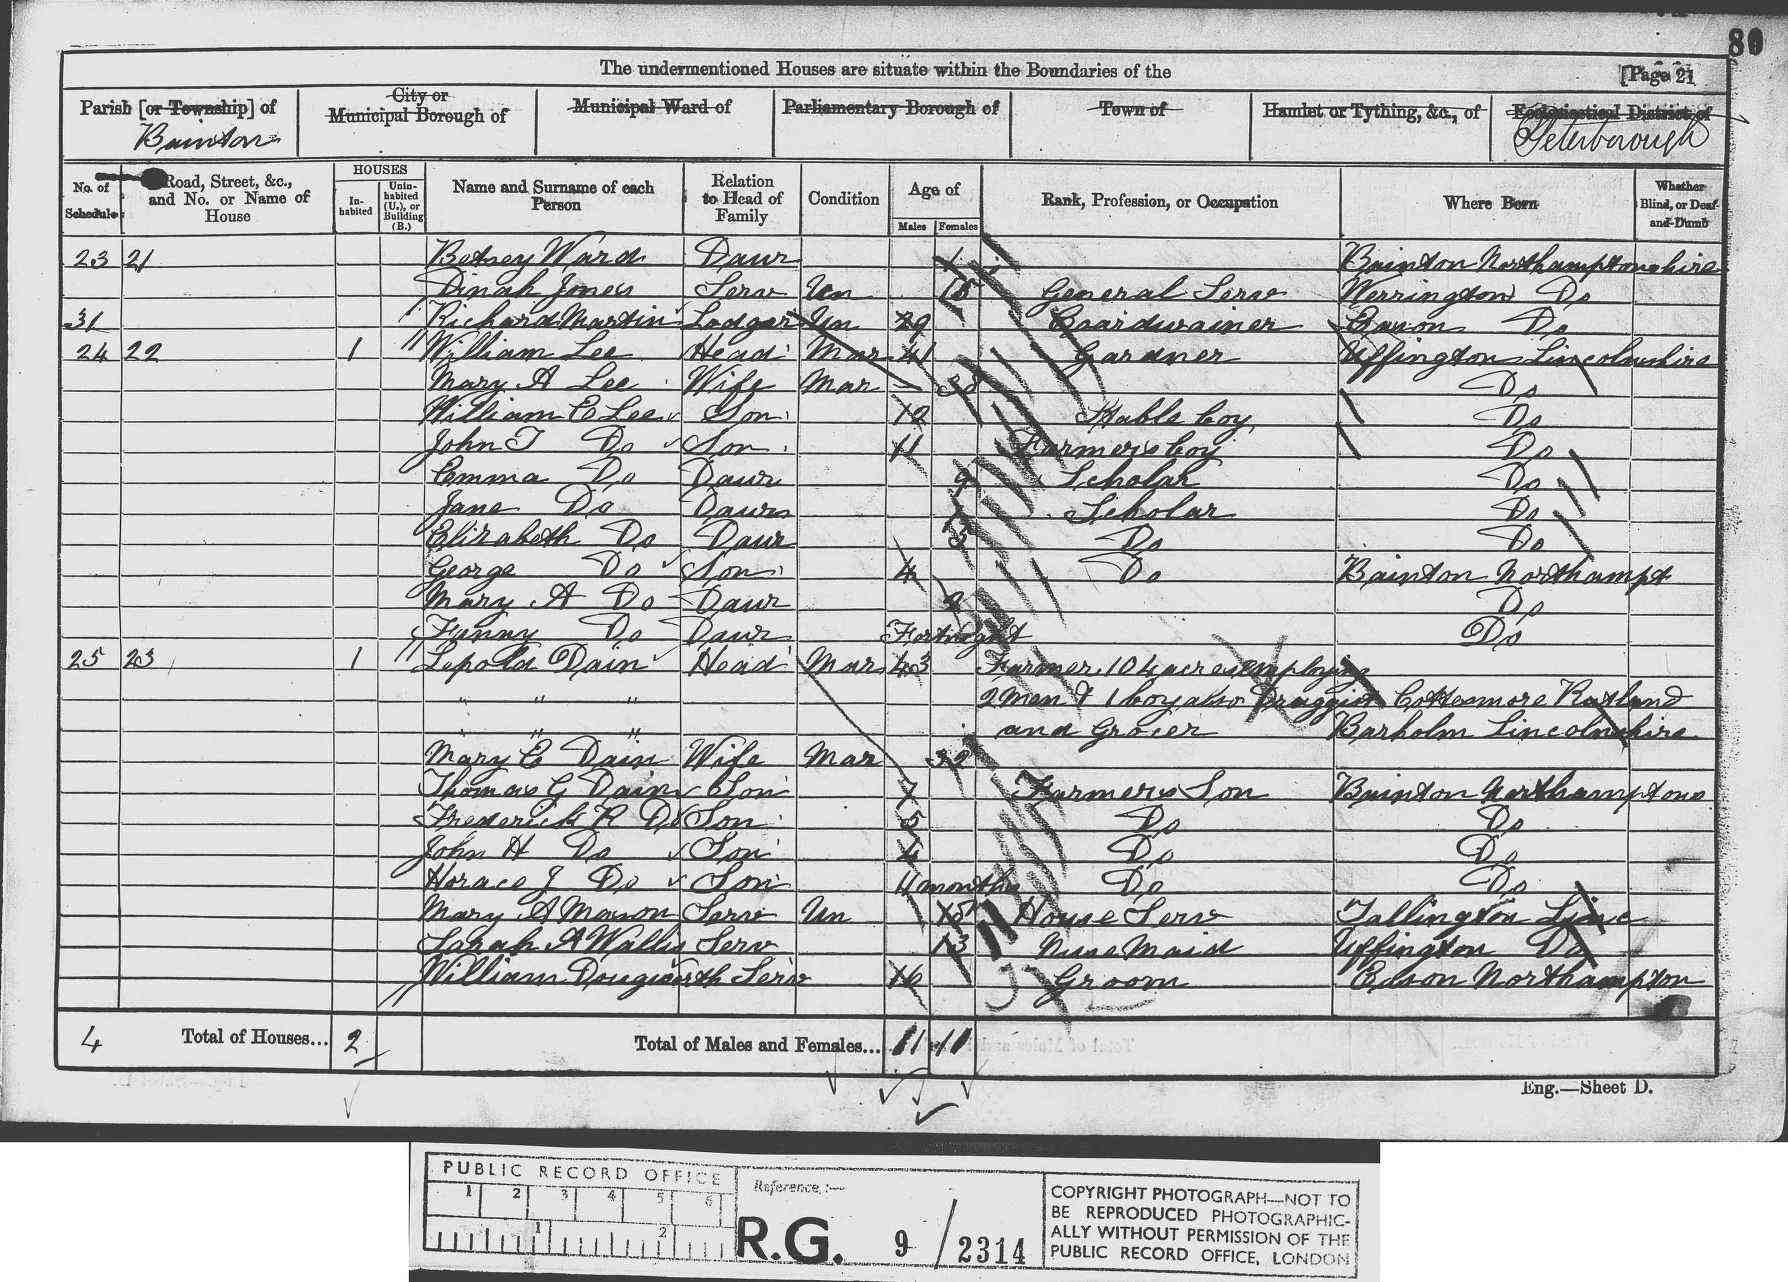 80
The undermentioned Houses are situate within the Boundaries of the
[Page 21
Parish [or Township] of
Bainton
City or
Municipal Borough of
Municipal Ward of
Parliamentary Borough of
Town of
Hamlet or Tything, &c., of
Ecclesiastical District of
Peterborough
No. of Schedule
Road, Street, &c., and No. or Name of House
HOUSES
In-habited
Unin-habited (U.), or Building (B.)
Name and Surname of each Person
Relation to Head of Family
Condition
Age of
Males
Females
Rank, Profession, or Occupation
Where Born
Whether Blind, or Deaf-and-Dumb
23 21 Betsey Ward Daur 1 Bainton Northamptonshire
Dinah Jones Serv Un 15 General Serv Werrington Do
31 Richard Martin Lodger Un 29 Coardwainer Do
24 22 1 William Lee Head Mar 41 Gardner Uffington Lincolnshire
Mary A Lee Wife Mar 38 Do
William C Lee Son 12 Stable boy Do
John T Do Son 11 Farmers boy Do
Emma Do Daur 9 Scholar Do
Jane Do Daur Scholar Do
Elizabeth Do Daur Do Do
George Do Son 4 Do Bainton Northampt
Mary A Do Daur 2 Do
Fanny Do Daur Fortnight Do
25 23 1 Lepold Dain Head Mar 43 Farmer 104 acres employing
" " " 2 Men & 1 boy also Druggist Cottesmore Rutland
" " " and Grocer Barholm Lincolnshire
Mary E Dain Wife Mar 32
Thomas G Dain Son 7 Farmers Son Bainton Northamptons
Frederick R Do Son 5 Do Do
John H Do Son 4 Do Do
Horace J Do Son 11 months Do Do
Mary A Mason Serv Un 15 House Serv Tallington Linc
Sarah A Wallis Serv 13 Nurse Maid Uffington Do
William Dougworth Serv 16 Groom Northampton
4 Total of Houses... 2 Total of Males and Females... 11 11
Eng.—Sheet D.
PUBLIC RECORD OFFICE
1 2 3 4 5 6
1 2
Reference:—
R.G. 9/2314
COPYRIGHT PHOTOGRAPH—NOT TO
BE REPRODUCED PHOTOGRAPHIC-
ALLY WITHOUT PERMISSION OF THE
PUBLIC RECORD OFFICE, LONDON